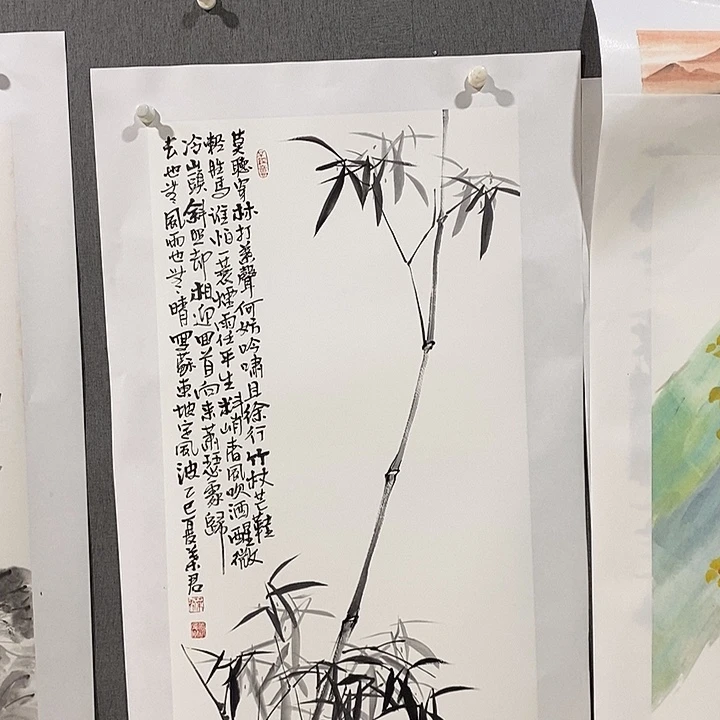 莫聽穿林打葉聲何妨吟嘯且徐行竹杖芒鞋
輕胜馬誰怕一蓑煙雨任平生料峭春風吹酒醒微
冷山頭斜照却相迎回首向來蕭瑟處歸
去也無風雨也無晴蘇東坡定風波乙巳夏葉君